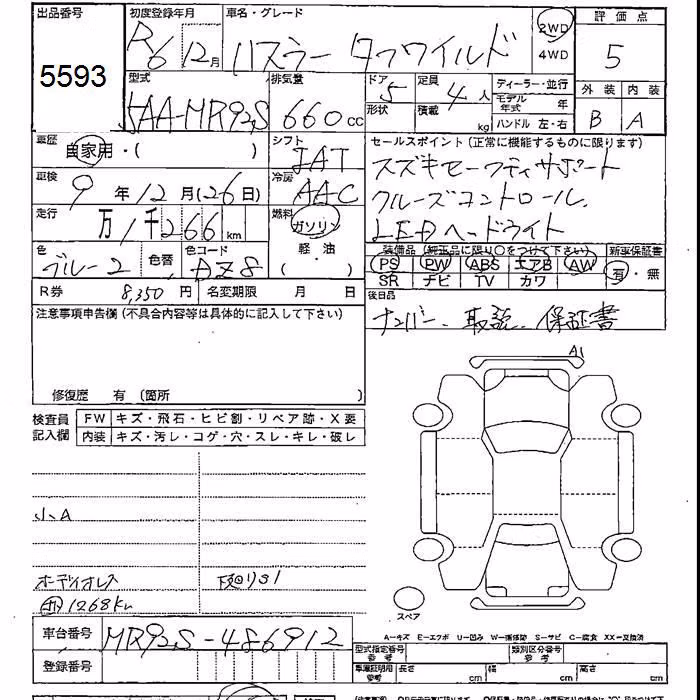 出品番号 初度登録年月 車名・グレード 評価点
5593 R6 12月 ハスラー タフワイルド 2WD 4WD 5
型式 排気量 ドア 5 定員 4人 ディーラー・並行 外装 内装
5AA-MR92S 660cc 形状 積載 kg モデル年式 年 ハンドル 左・右 B A
車歴 自家用・( ) シフト IAT セールスポイント(正常に機能するものに限ります)
車検 9年12月(26日) 冷房 AAC スズキセーフティサポート
クルーズコントロール、
走行 万1千266km 燃料 ガソリン LEDヘッドライト
色 ブルー2 色替 色コード DZ8 軽・油 ( ) 装備品(純正品に限り○をつけて下さい) 新車保証書
PS PW ABS エアB AW 有・無
SR ナビ TV カワ
R券 8,350円 名変期限 月 日 後日品
注意事項申告欄(不具合内容等は具体的に記入して下さい) ナンバー、取説、保証書
A1
修復歴 有 (箇所 )
検査員 FW キズ・飛石・ヒビ割・リペア跡・X要
記入欄 内装 キズ・汚レ・コゲ・穴・スレ・キレ・破レ
小A
オーディオレス 下廻りS1
1268km
スペア
車台番号 MR92S-486912 A-キズ E-エクボ U-凹み W-補修跡 S-サビ C-腐食 XX-交換済
型式指定番号 参考 類別区分番号 参考
登録番号 車庫証明用参考 長さ cm 幅 cm 高さ cm